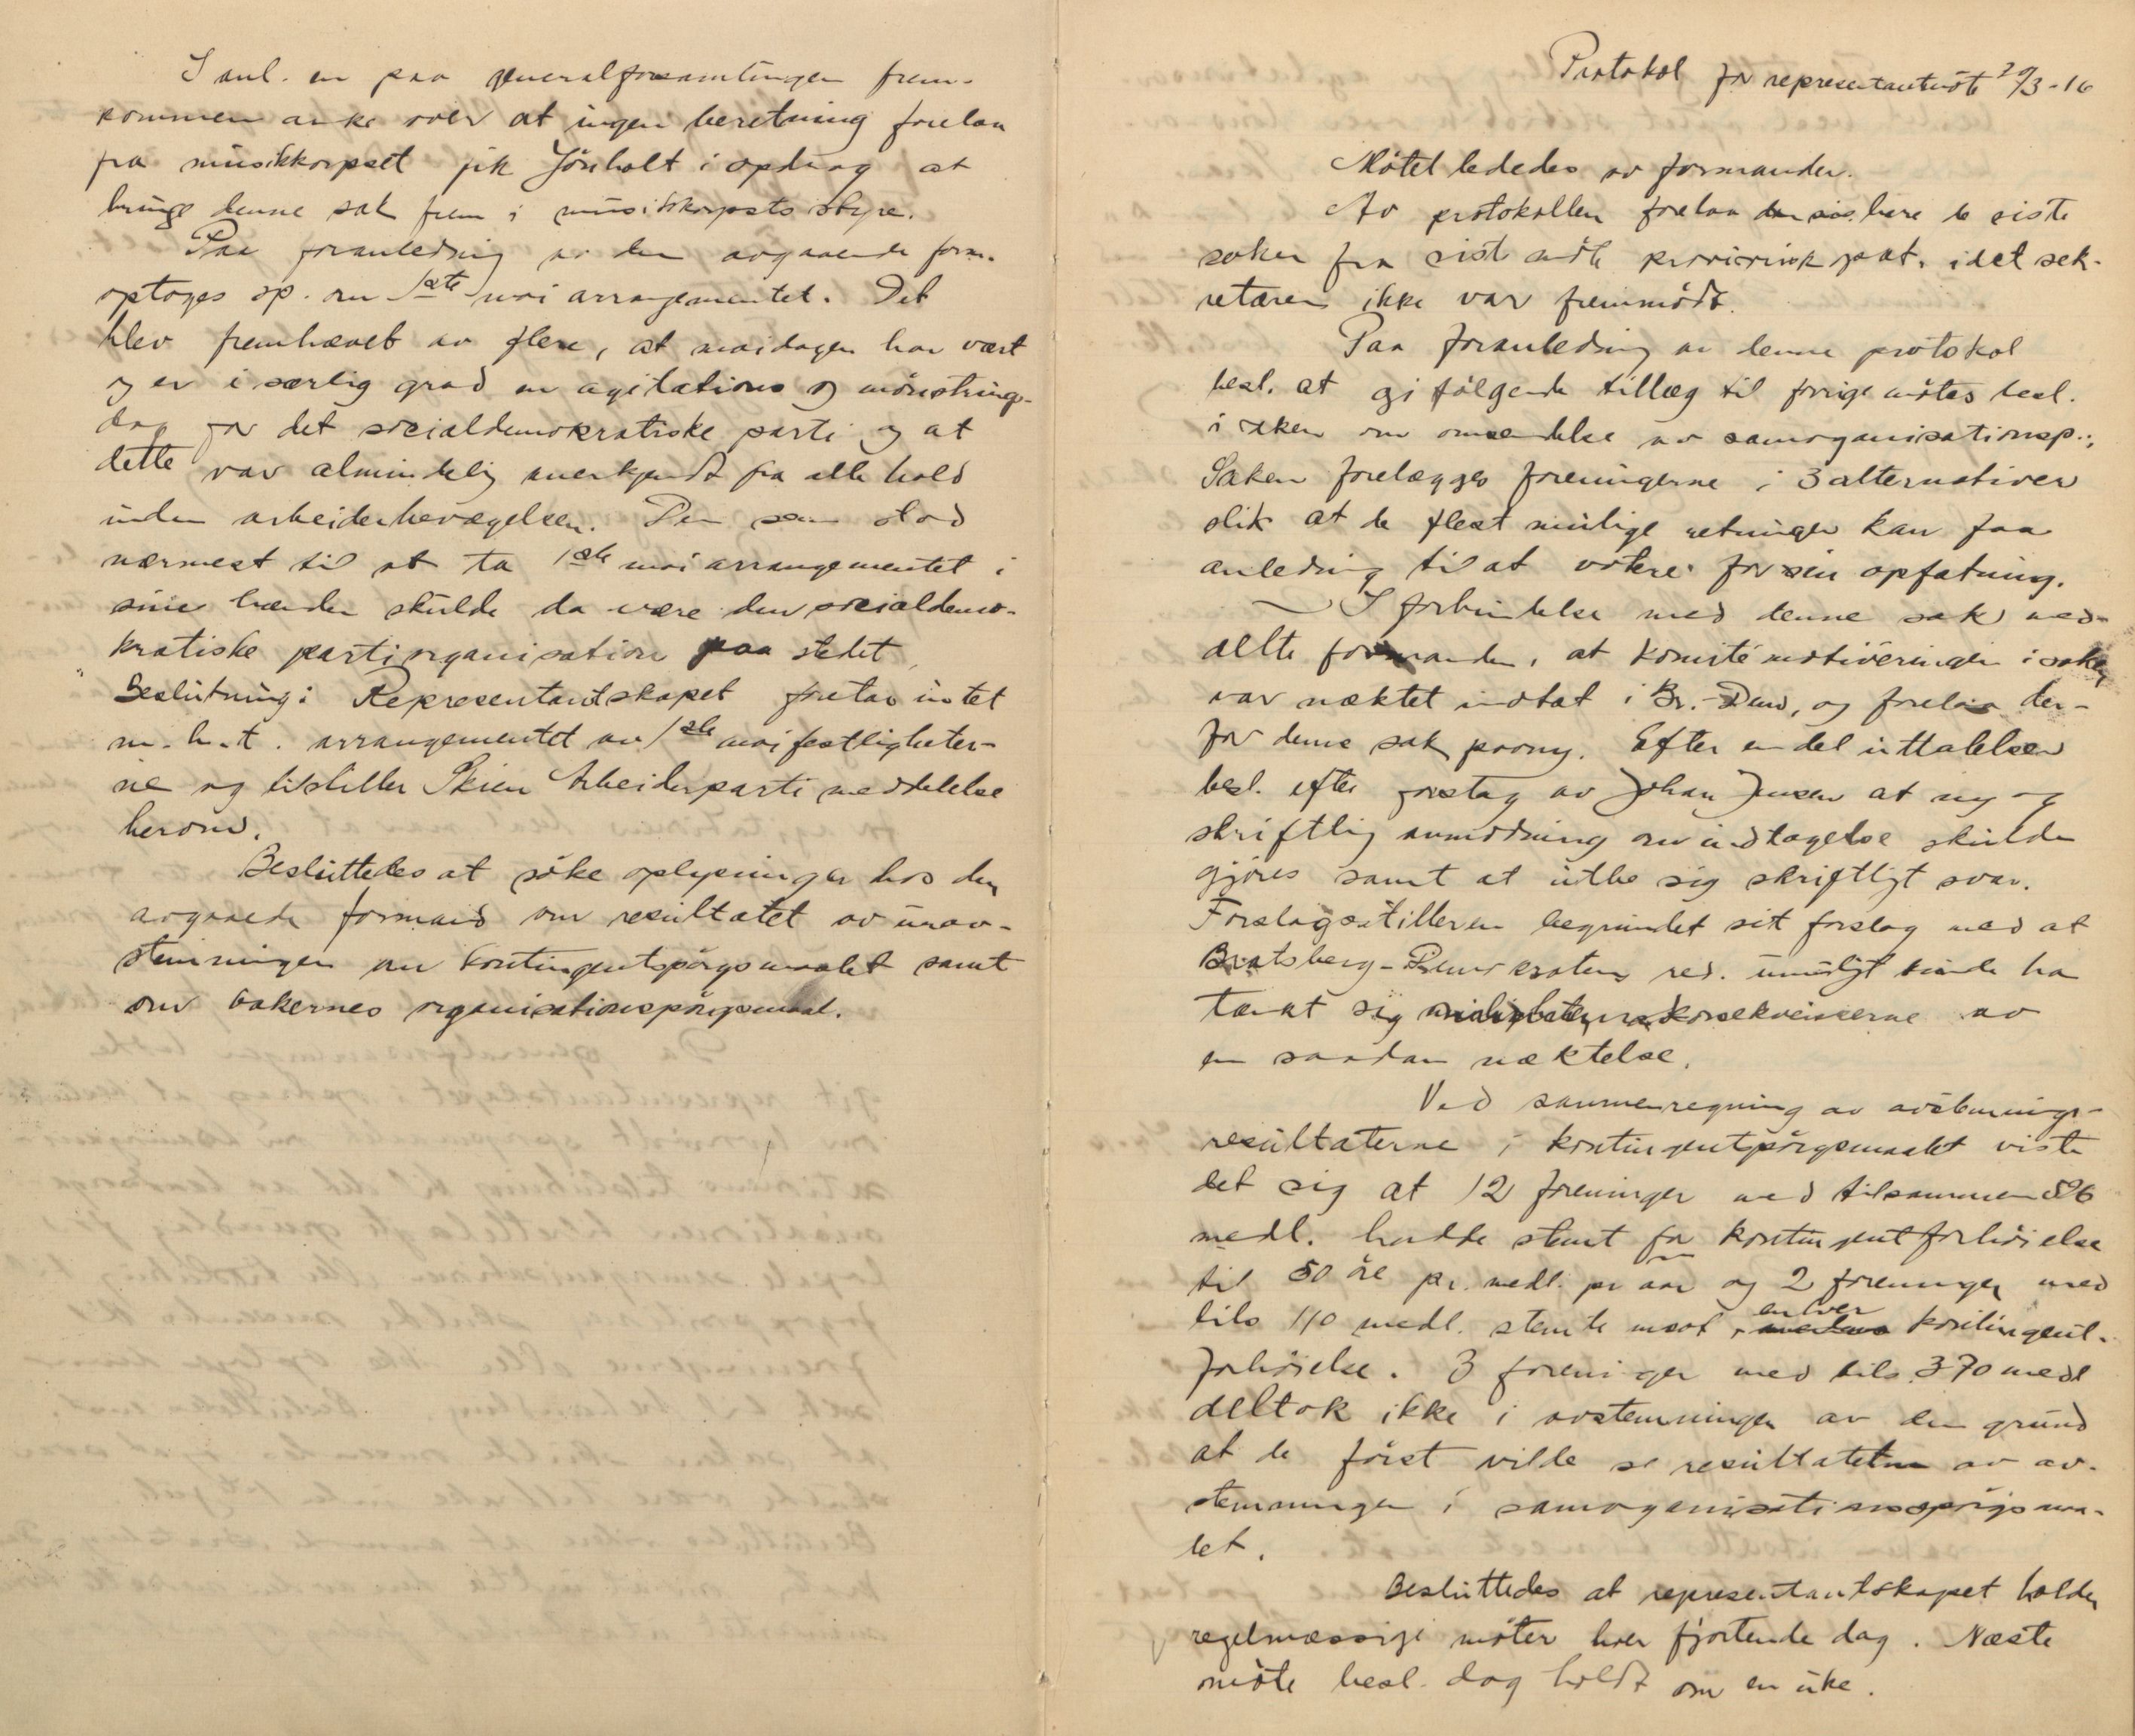 I anl. en paa generalforsamlingen frem-
kommen anke over at ingen beretning forelaa
fra musikkorpset fik Jönholt i opdrag at
bringe denne sak frem i musikkorpsets styre.
Paa foranledning av den avgaaende form.
optoges sp. om 1ste mai arrangementet. Det
blev fremhævet av flere, at maidagen har vært
og er i særlig grad en agitations og mönstrings-
dag for det socialdemokratiske parti og at
dette var almindelig anerkjendt fra alle hold
inden arbeiderbevægelsen. Den som stod
nærmest til at ta 1ste mai arrangementet i
sine hænder skulde da være den socialdemo-
kratiske partiorganisation paa stedet.
Beslutning: Representantskapet foretar intet
m.h.t. arrangementet av 1ste maifestligheter-
ne og tilstiller Skien Arbeiderparti meddelelse
herom.
Besluttedes at söke oplysninger hos den
avgaaede formand om resultatet av urav-
stemningen om kontingentspörgsmaalet samt
om bakernes organisationsspörgsmaal.
Protokol for representantmöte 29/3-16
Mötet lededes av formanden.
Av protokollen forelaa bare de siste
saker fra siste möte idet sek-
retæren ikke var fremmödt.
Paa foranledning av denne protokol
besl. at gi fölgende tillæg til forrige mötes besl.
i saken om omsendelse av samorganisationsp.:
Saken forelægges foreningerne i 3 alternativer
slik at de flest mulige retninger kan faa
anledning til at votere for sin opfatning.
I forbindelse med denne sak med-
delte formanden, at komité motiveringen i saken
var næktet indtat i Br.-Dem, og forelaa der-
for denne sak paany. Efter en del uttalelser
besl. efter forslag av Johan Jensen at ny og
skriftlig anmodning om indtagelse skulde
gjöres samt at utbe sig skriftligt svar.
Forslagsstilleren begrundet sit forslag med at
Bratsberg-Demokratens red. umuligt kunde ha
tænkt sig konsekvenserne av
en saadan næktelse.
Ved sammenregning av avstemnings-
resultaterne i kontingentspörgsmaalet viste
det sig at 12 foreninger med tilsammen 526
medl. hadde stemt for kontingentforhöielse
til 50 öre pr. medl. pr aar og 2 foreninger med
tils 110 medl. stemte mot enhver kontingent-
forhöielse. 3 foreninger med tils. 370 medl
deltok ikke i avstemningen av den grund
at de först vilde se resultatet av av-
stemningen i samorganisationsspörgsmaa-
let.
Besluttedes at representantskapet holder
regelmæssige möter hver fjortende dag. Næste
möte besl. dog holdt om en uke.